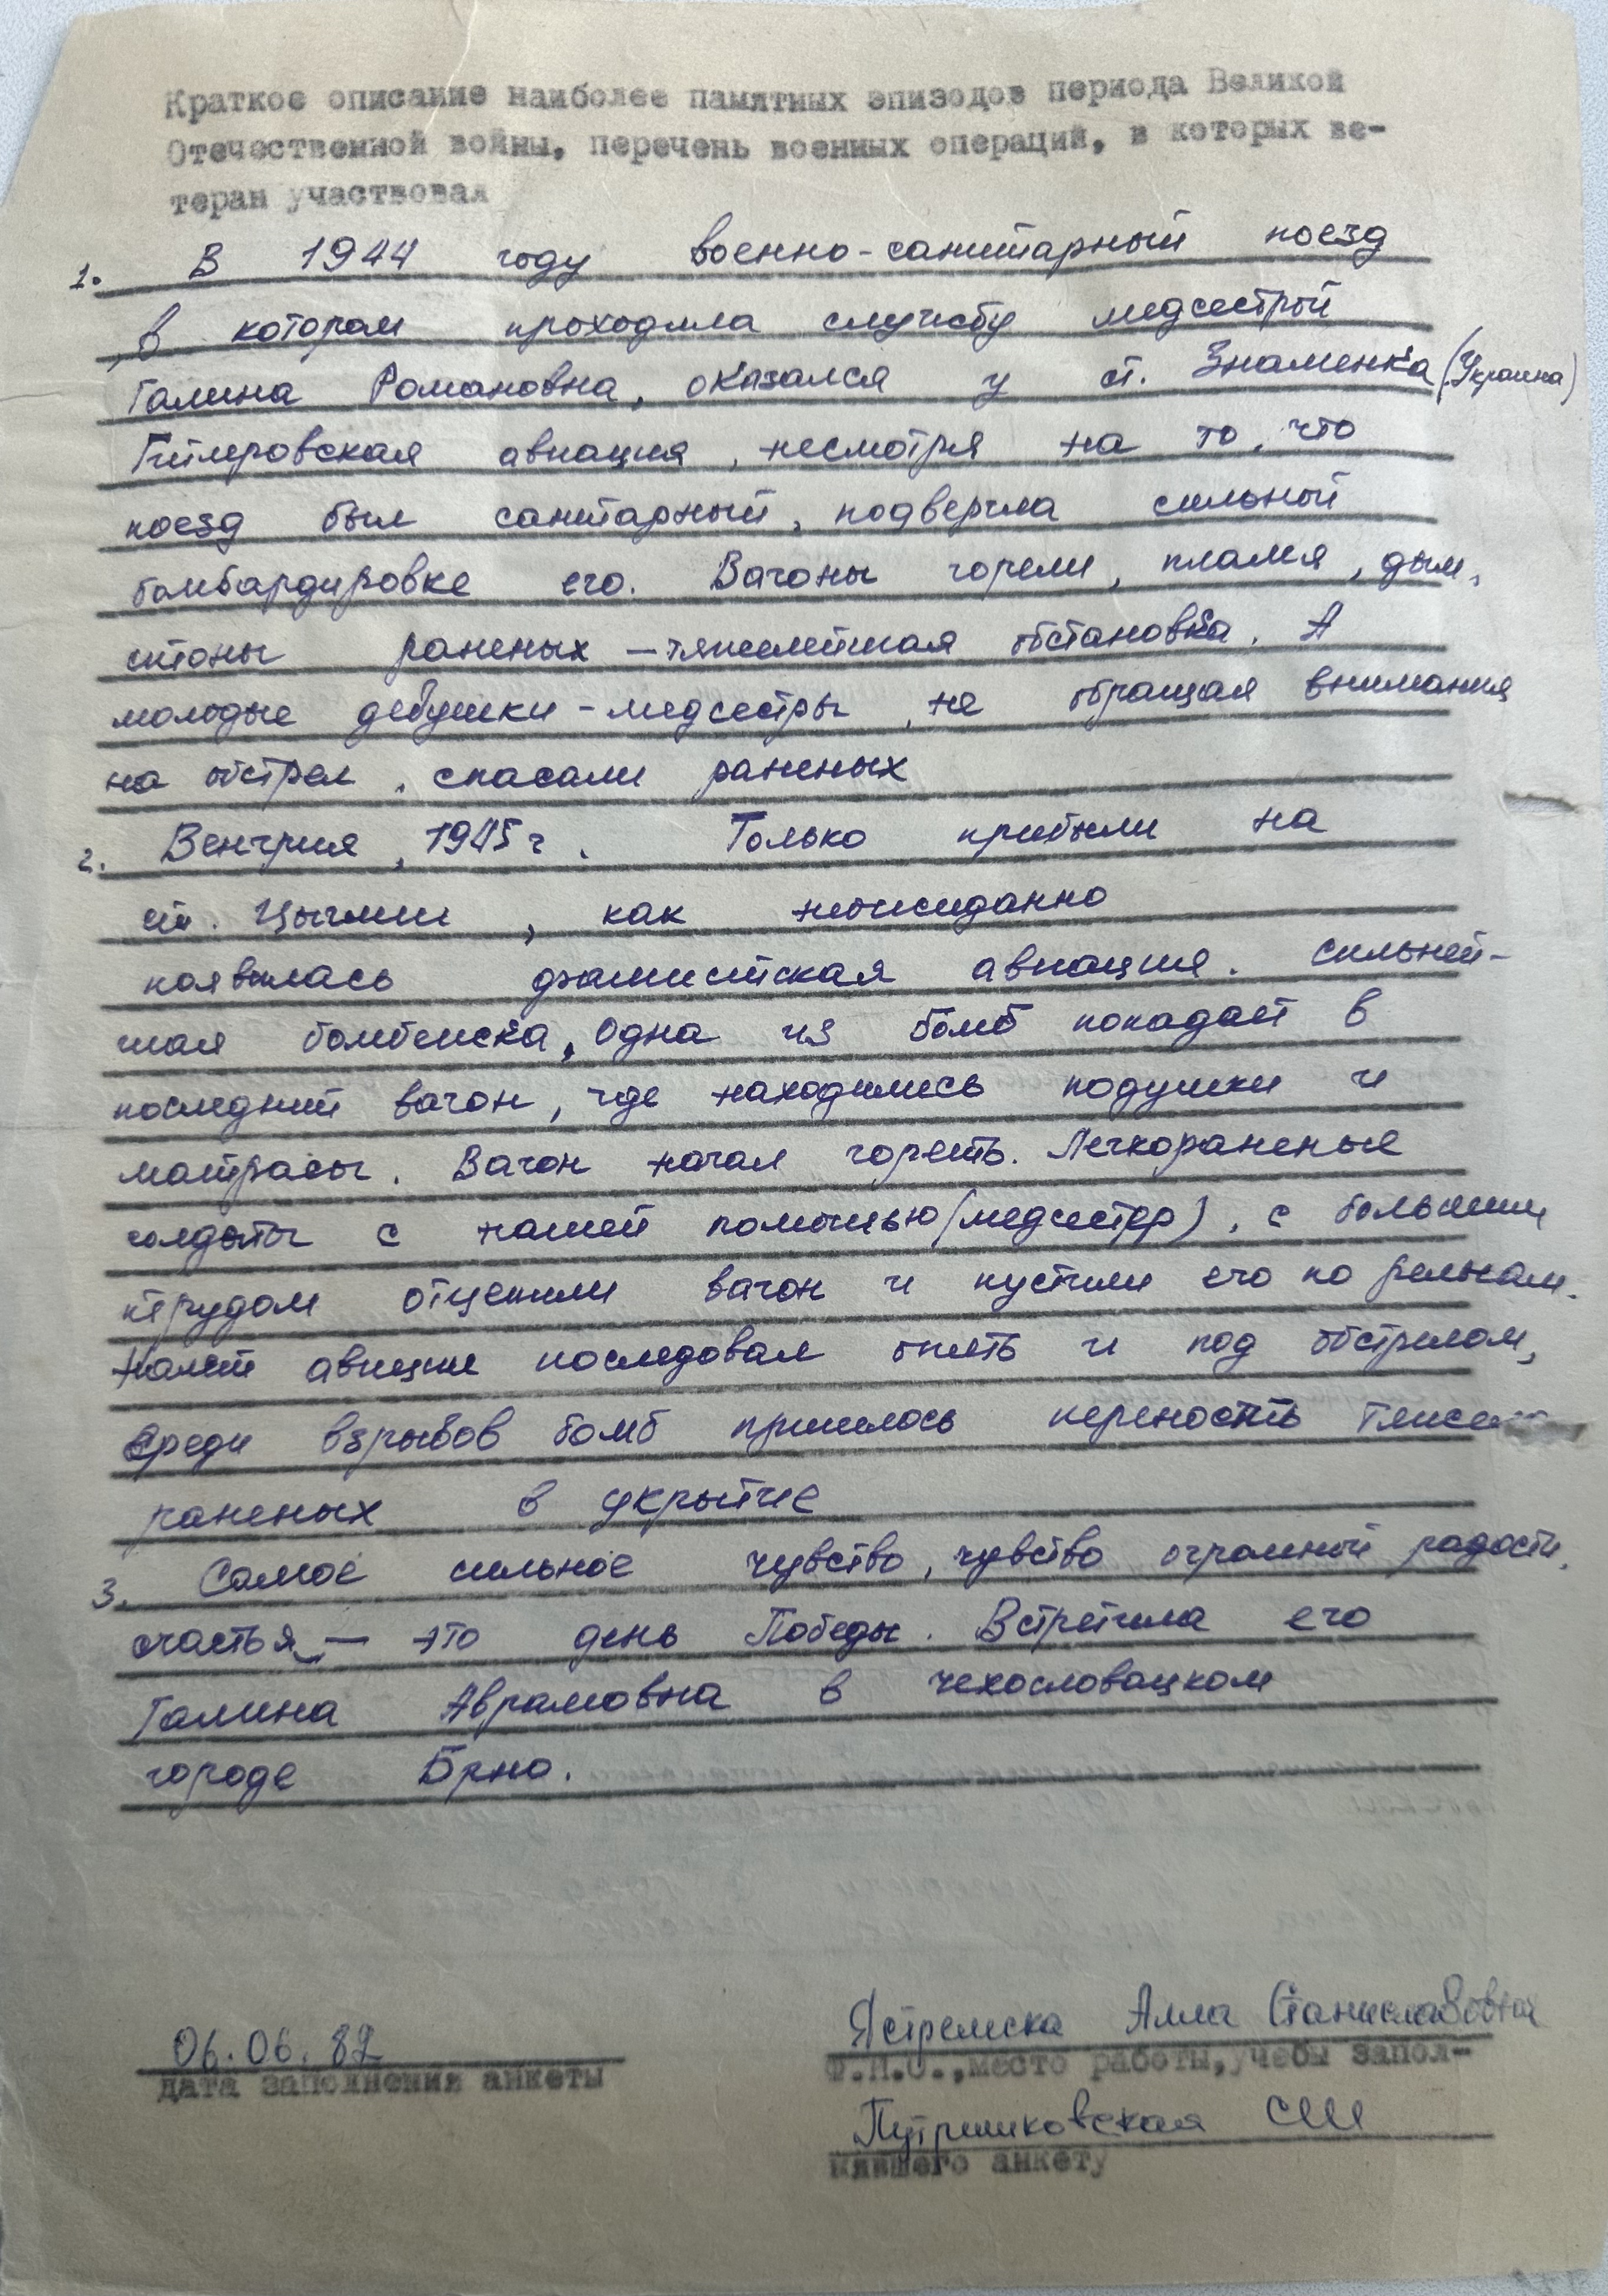 Краткое описание наиболее памятных эпизодов периода Великой
Отечественной войны, перечень военных операций, в которых ве-
теран участвовал
1. В 1944 году военно-санитарный поезд
, в котором проходила службу медсестрой
Галина Романовна, оказался у ст. Знаменка (Украина)
Гитлеровская авиация, несмотря на то, что
поезд был санитарный, подвергла сильной
бомбардировке его. Вагоны горели, пламя, дым,
стоны раненых — тяжелейшая обстановка. А
молодые девушки - медсестры, не обращая внимания
на обстрел, спасали раненых
2. Венгрия, 1945 г. Только прибыли на
ст. , как неожиданно
появилась фашистская авиация. Сильней-
шая бомбежка. Одна из бомб попадает в
последний вагон, где находились подушки и
матрасы. Вагон начал гореть. Легкораненые
солдаты с нашей помощью (медсестер), с большим
трудом отцепили вагон и пустили его по рельсам.
Налет авиации последовал опять и под обстрелом,
среди взрывов бомб пришлось переносить
раненых в укрытие
3. Самое сильное чувство, чувство огромной радости,
счастья, — это день Победы. Встретила его
Галина Аврамовна в чехословацком
городе Брно.
06.06.82
дата заполнения анкеты
Ястремска Алла Станиславовна
Ф.И.О., место работы, учебы запол-
СШ
нявшего анкету